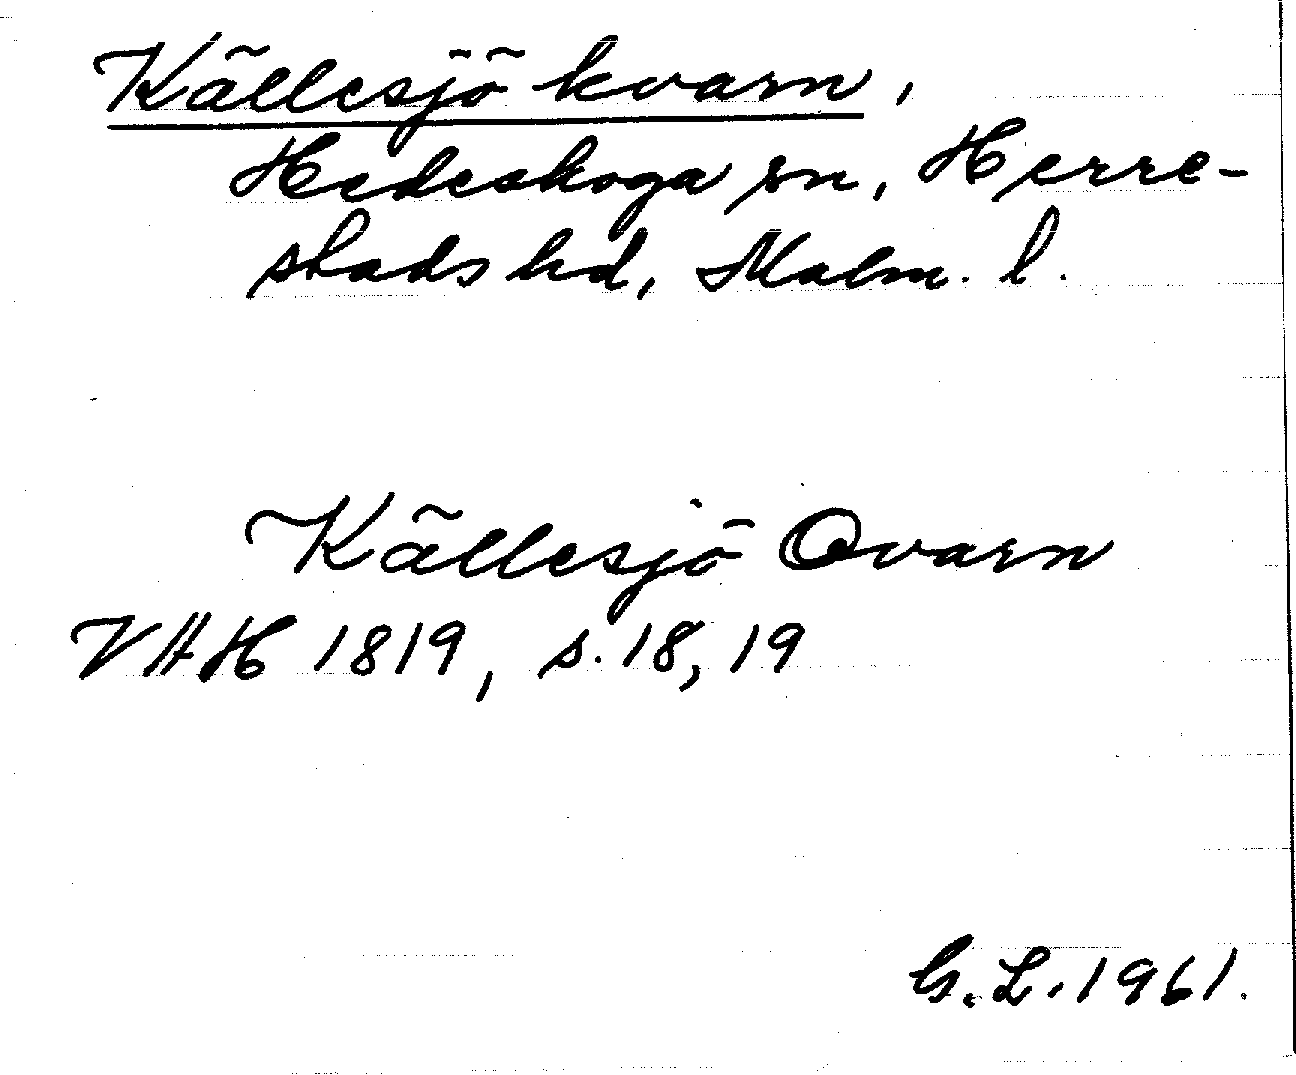 Källesjö kvarn,
Hedeskoga sn, Herre-
stads hd, Malm. l.
Källesjö Qvarn
VAH 1819, s. 18, 19
G. L. 1961.